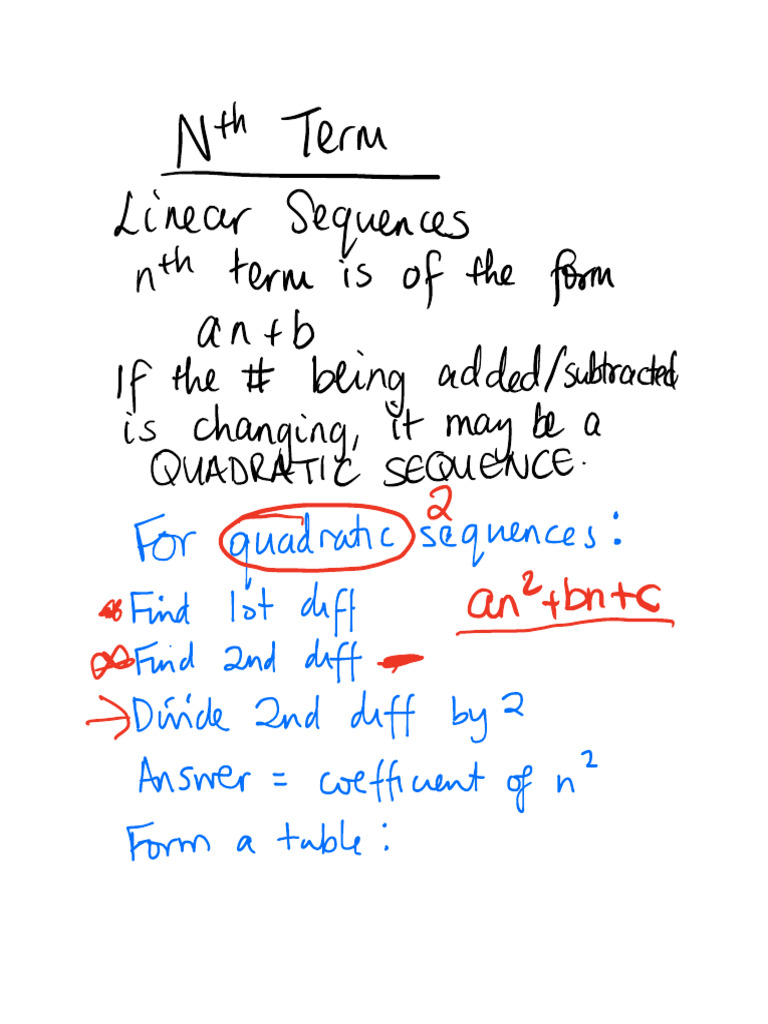 Nth Term
Linear Sequences
nth term is of the form
an+b
If the # being added/subtracted
is changing, it may be a
QUADRATIC SEQUENCE.
2
For quadratic sequences:
Find 1st diff
an²+bn+c
Find 2nd diff
→ Divide 2nd diff by 2
Answer = coefficient of n²
Form a table: